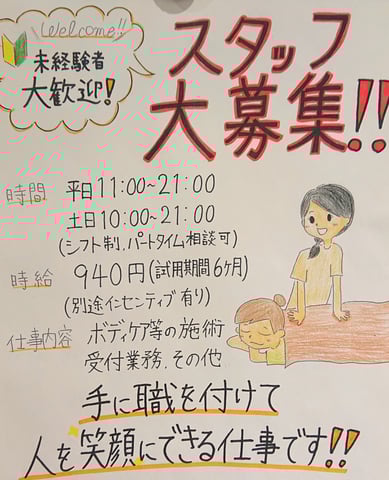 Welcome!!
未経験者
大歓迎!
スタッフ
大募集!!
時間 平日11:00~21:00
土日10:00~21:00
(シフト制、パートタイム相談可)
時給 940円(試用期間6ヶ月)
(別途インセンティブ有り)
仕事内容 ボディケア等の施術
受付業務、その他
手に職を付けて
人を笑顔にできる仕事です!!